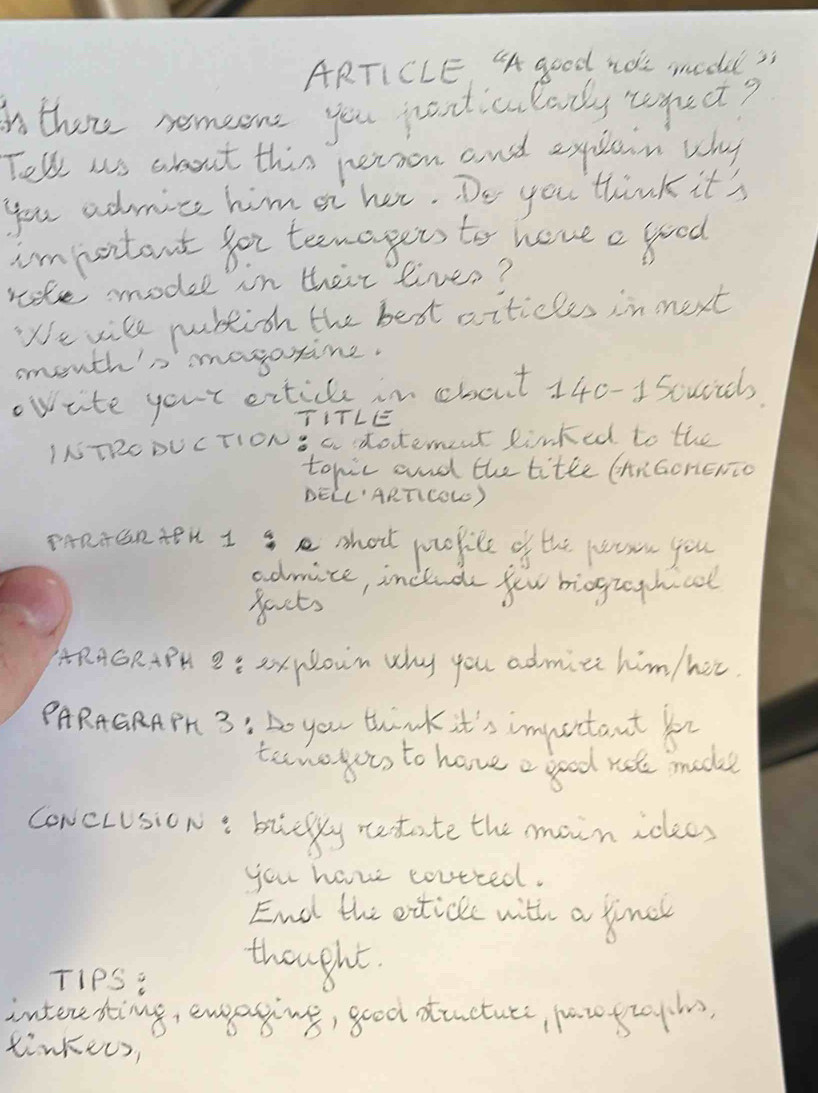 ARTICLE "A good role model"
Is there someone you particularly respect?
Tell us about this person and explain why
you admire him or her. Do you think it's
important for teenagers to have a good
role model in their lives?
We will publish the best articles in next
month's magazine.
• Write your article in about 140-150 words.
TITLE
INTRODUCTION: a statement linked to the
topic and the title (ARGOMENTO
DELL'ARTICOLO)
PARAGRAPH 1: a short profile of the person you
admire, include few biographical
facts
PARAGRAPH 2: explain why you admire him/her.
PARAGRAPH 3: Do you think it's important for
teenagers to have a good role model
CONCLUSION: briefly restate the main ideas
you have covered.
End the article with a final
thought.
TIPS:
interesting, engaging, good structure, paragraphs,
linkers,